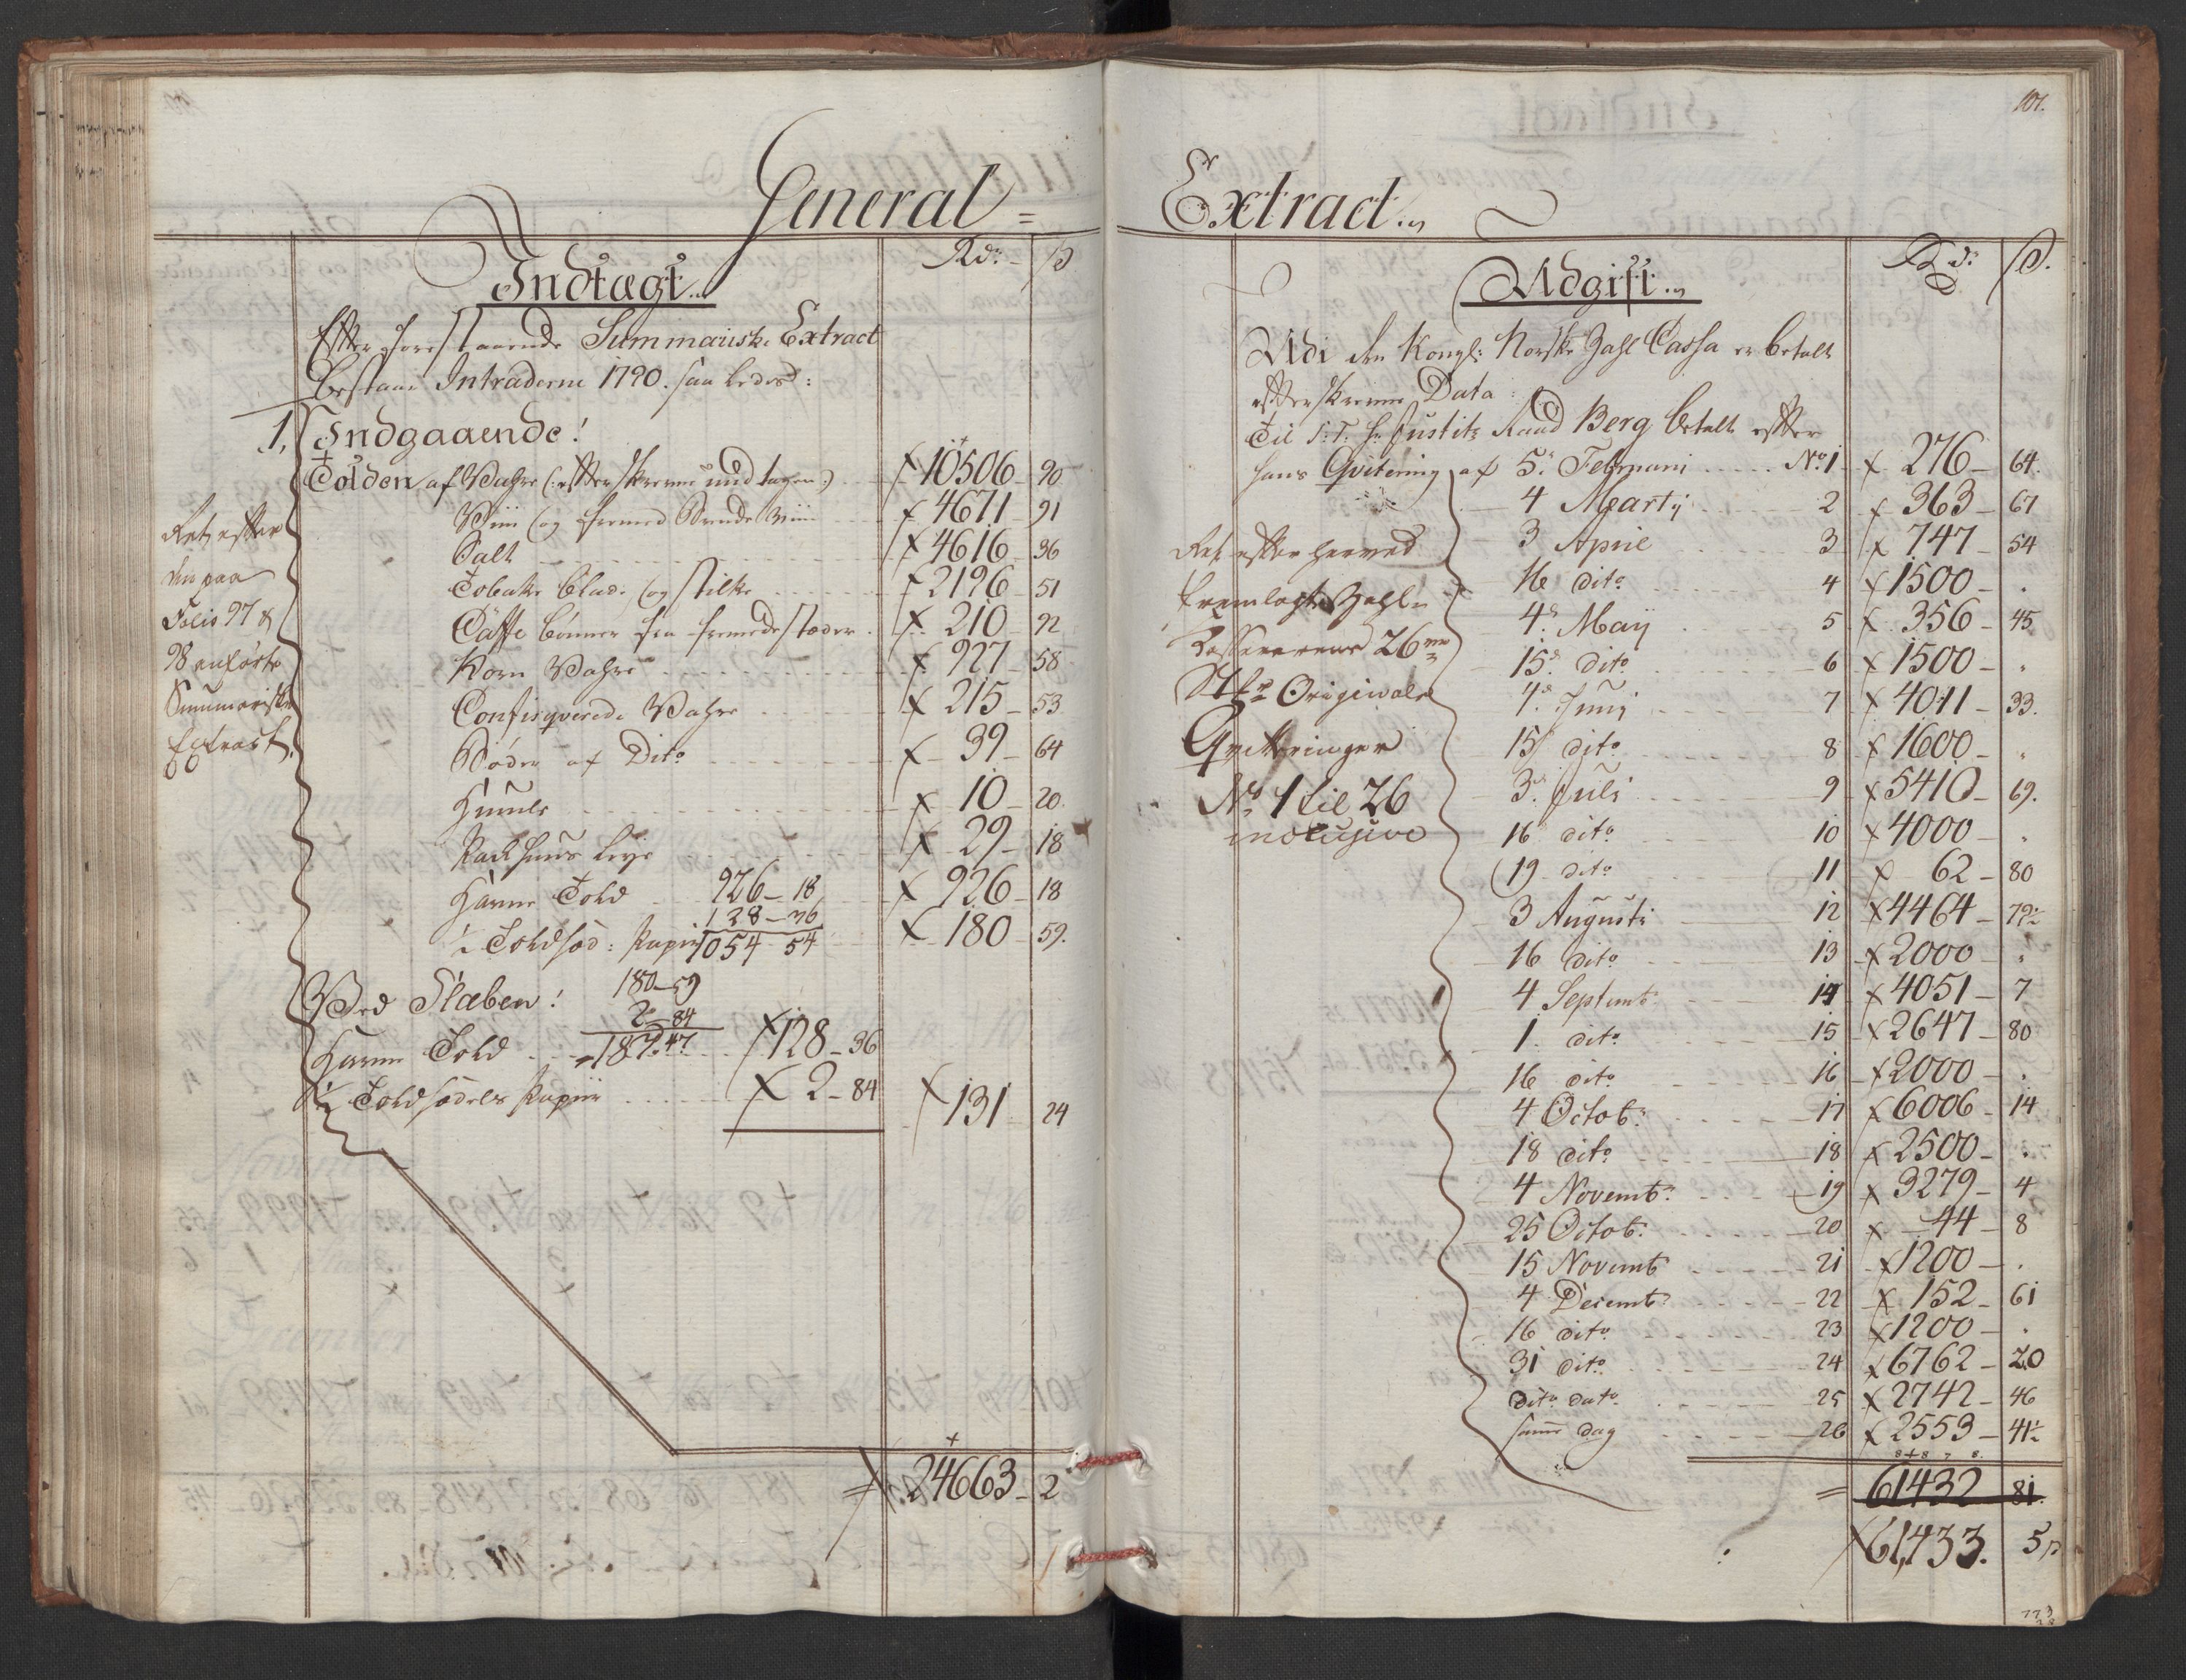 General =
Rdr. ß
Indtægt.
Efter forestaaende Summariske Extract
bestaar Intraderne 1790. saaledes:
1, Indgaaende!
Tolden af Vahre (: efterskrevne undtagen :) 10506 90
Viin og fremmed Brændeviin 4671 91
Salt 4616 36
Tobaks Blade og Stilke 2196 51
Caffe bønner fra fremmede stæder 210 92
Korn Vahre 927 58
Confisqverede Vahre 215 53
Bøder af Dito 39 64
Humle 10 20
Pachuus Leye 29 18
Havne Told 926 - 18 926 18
128 - 36
½ Toldsed: Papiir 1054 54 180 59.
Ved Slæben!
180 - 59
2 - 84
Havne Told 187. 47. 128 - 36
½ Toldsedels Papiir 2 - 84 131 24
24663 - 2
Ret efter
den paa
Folio 97 &
98 anførte
Summariske
Extract.
101.
Extract.
Rdr. ß.
Udgift.
Udi den Kongl: Norske Zahl Cassa er betalt
efterskrevne Data:
Til S: T: Hr. Justitz Raad Berg betalt efter
hans Qvitering af 5. Februarii No. 1 276 64.
4 Martij 2 363 67
3 April 3 747 54
16 dito 4 1500 .
4. Maij 5 356 45
15. dito 6 1500 .
4. Junij 7 4011 33.
15 dito 8 1600 .
3. Juli 9 5410 69.
16 dito 10 4000 .
19 dito 11 62 80
3 Augusti 12 4464 79½
16 dito 13 2000 .
4 Septemb: 14 4051 7
1. dito 15 2647 80
16 dito 16 2000 .
4 Octob: 17 6006 14
18 dito 18 2500 .
4 Novemb: 19 3279 4
25 Octob: 20 44 8
15 Novemb: 21 1200 .
4 Decemb: 22 152 61
16 dito 23 1200 .
31 dito 24 6762 20
dito dato 25 2742 46
samme dag 26 2553 41½
61432 81.
61,433. 5 ß
Ret efter herved
fremlagte Zahl
Casserens 26
Stkr Originale
Qvitteringer
No. 1 til 26
inclusive